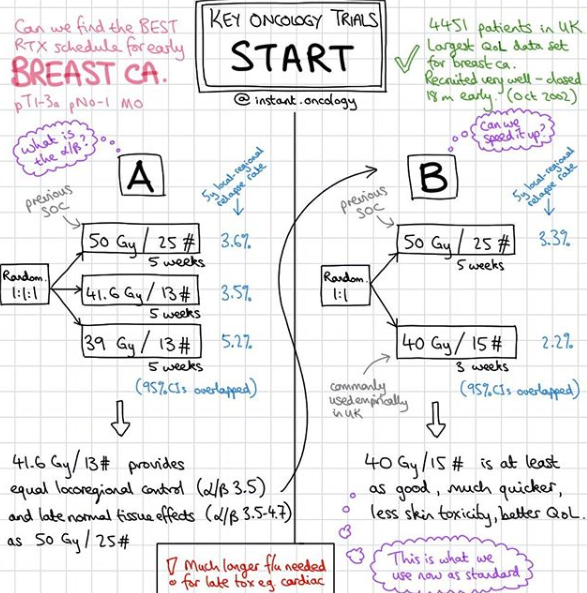 Can we find the BEST
RTX schedule for early
BREAST CA.
pT1-3a pN0-1 M0
KEY ONCOLOGY TRIALS
START
@instant.oncology
✓
4451 patients in UK
Largest QoL data set
for breast ca.
Recruited very well - closed
18m early. (Oct 2002)
what is
the α/β?
A
5y local-regional
relapse rate
previous
SOC
50 Gy / 25 #
3.6%
5 weeks
Random.
1:1:1
41.6 Gy / 13 #
3.5%
5 weeks
39 Gy / 13 #
5.2%
5 weeks
(95% CIs overlapped)
41.6 Gy / 13# provides
equal locoregional control (α/β 3.5)
and late normal tissue effects (α/β 3.5-4.7)
as 50 Gy / 25#
Can we
speed it up?
B
5y local-regional
relapse rate
previous
SOC
50 Gy / 25 #
3.3%
5 weeks
Random.
1:1
40 Gy / 15 #
2.2%
3 weeks
commonly
used empirically
in UK
(95% CIs overlapped)
40 Gy/15 # is at least
as good, much quicker,
less skin toxicity, better QoL.
This is what we
use now as standard
! Much longer f/u needed
for late tox eg. cardiac